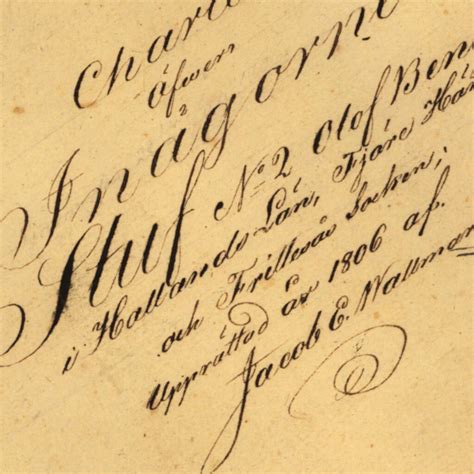 Chart
Öfwer
Inägorne
Stuf № 2 Olof Ben
i Hallands Län, Fjäre Hä
och Frillesås Socken;
Upprättad år 1806 af.
Jacob E. Wallmar